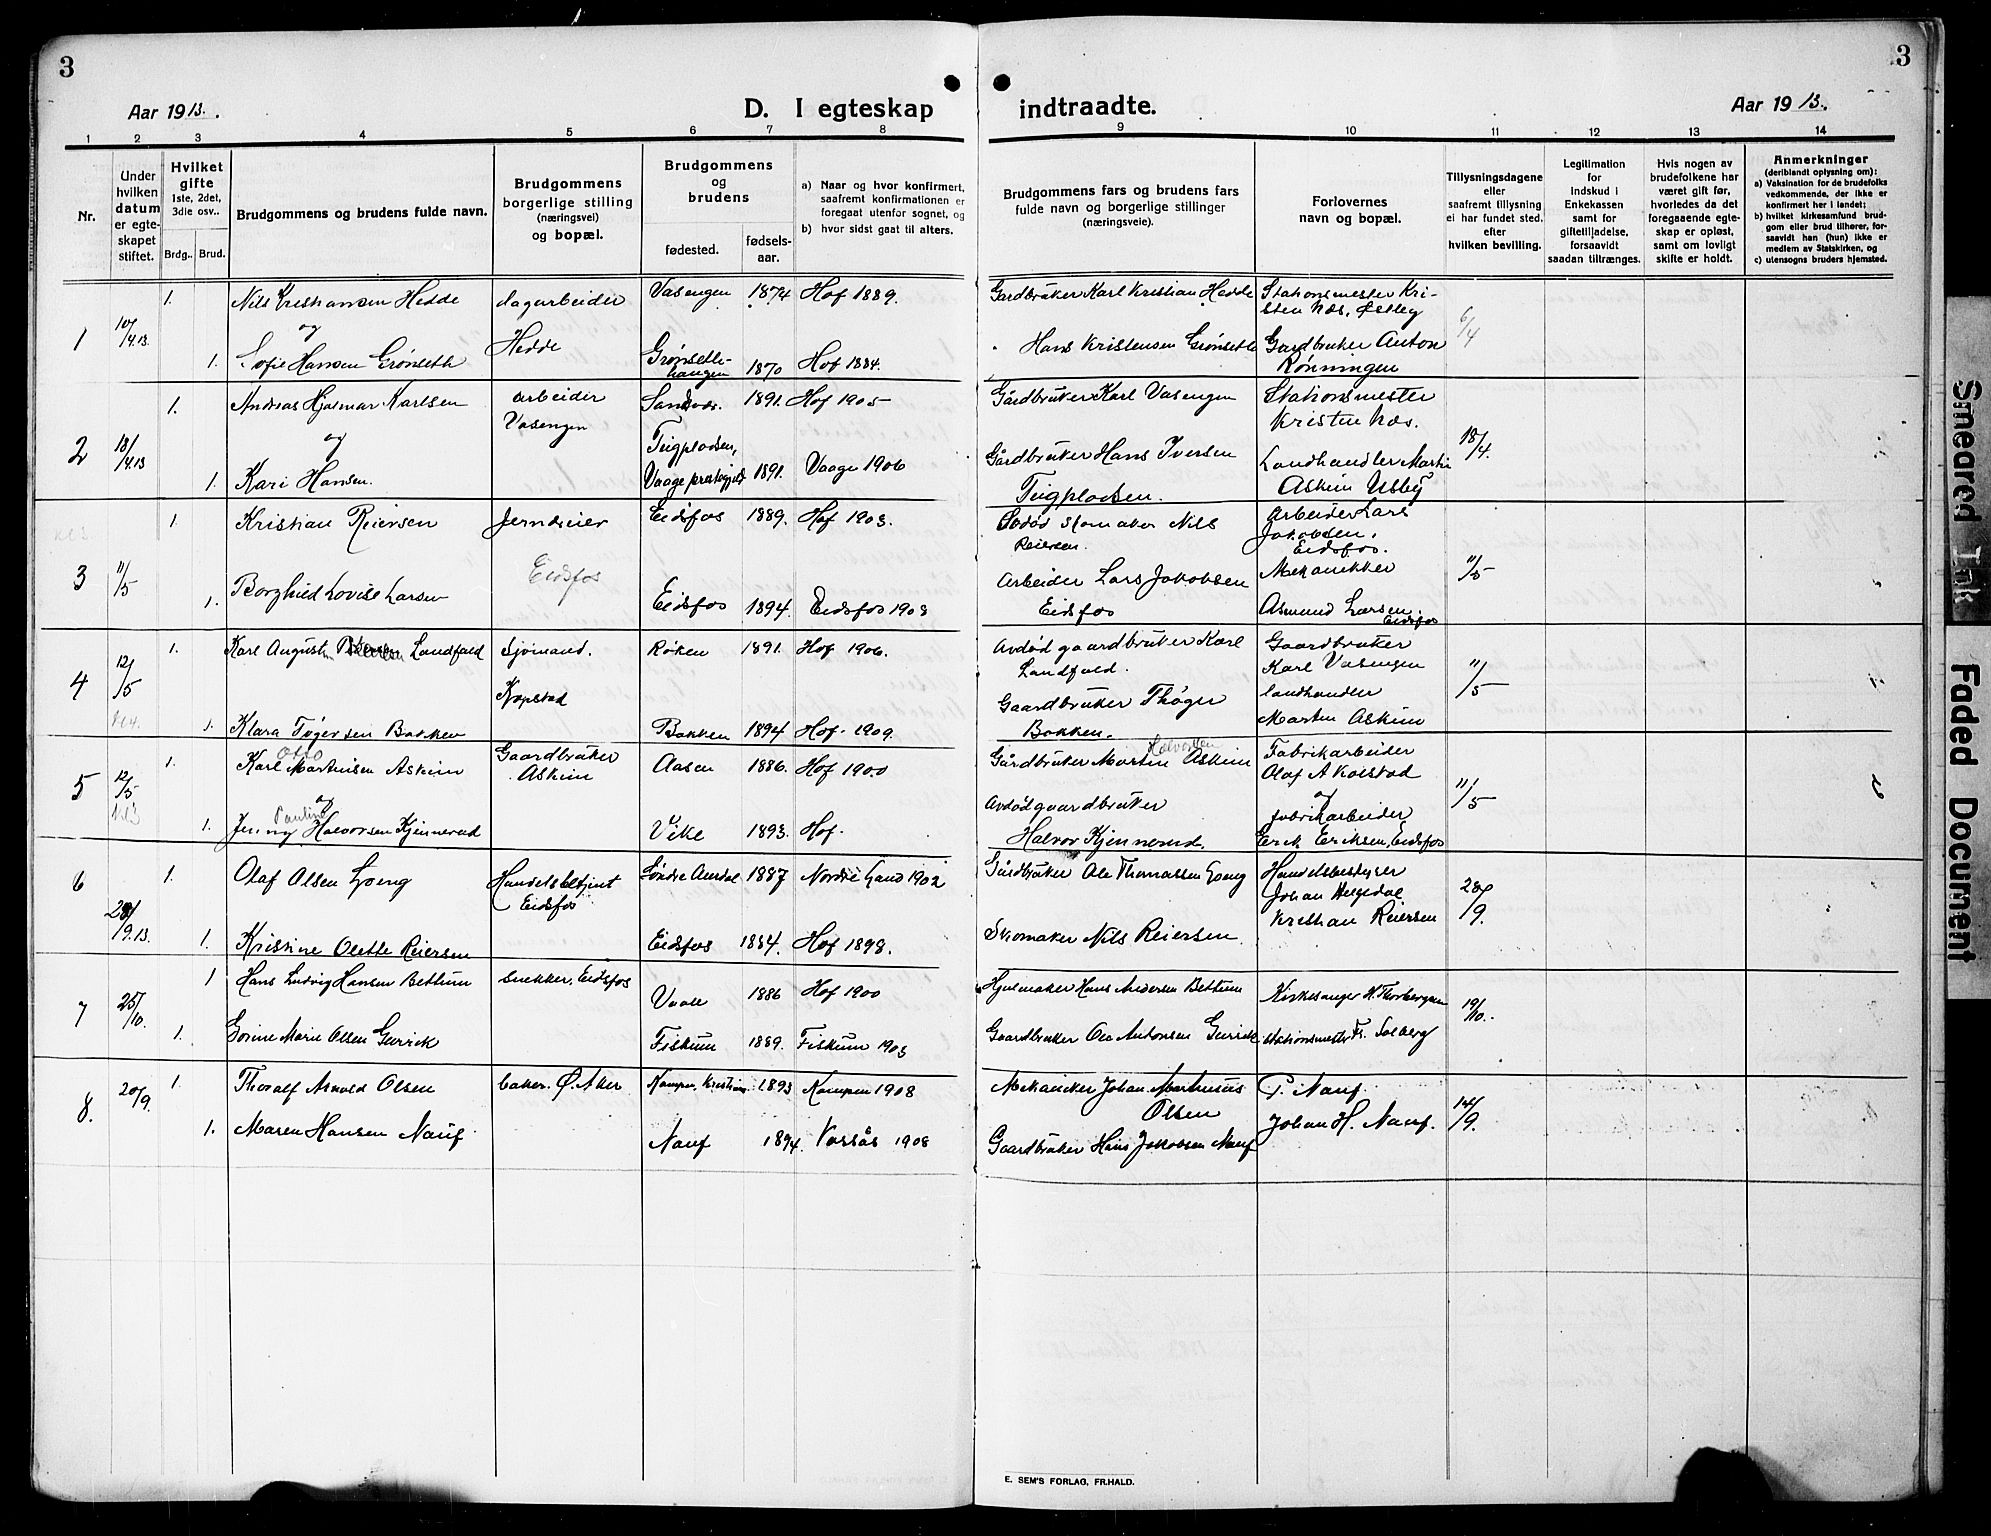 3
Aar 1913.
D. I egteskap
1 2 3 4 5 6 7 8
Nr.
Under hvilken datum er egteskapet stiftet.
Hvilket gifte 1ste, 2det, 3die osv..
Brdg.. Brud.
Brudgommens og brudens fulde navn.
Brudgommens borgerlige stilling (næringsvei) og bopæl.
Brudgommens og brudens
fødested.
fødselsaar.
a) Naar og hvor konfirmert, saafremt konfirmationen er foregaat utenfor sognet, og
b) hvor sidst gaat til alters.
1 10/4.13. 1. Nils Kristiansen Hedde dagarbeider Vasengen 1874 Hof 1889.
og Hedde
1. Sofie Hansen Grønseth Grønsethhaugen 1870 Hof 1884.
2 18/4.13 1. Andreas Hjalmar Karlsen arbeider Sandsvær. 1891. Hof 1905
og Vasengen
1. Kari Hansen. Tugplodsen, Vaage prestegjeld 1891. Vaage 1906
3 11/5 1. Kristian Reiersen Jerndreier Eidsfos 1889. Hof 1903.
Eidsfos
1. Borghild Lovise Larsen Eidsfos 1894. Eidsfos 1908
4 12/5 1. Karl August Landfald Sjømand. Røken 1891. Hof 1906.
Kopstad
1. Klara Tøgersen Bakken Bakken 1894 Hof. 1909.
5 12/5 1. Karl Otto Martinsen Askim Gaardbruker Askim Aasen 1886. Hof 1900
og
1. Jenny Pauline Halvorsen Kjennerud Vike 1893. Hof.
6 28/9.13. 1. Olaf Olsen Goeng Handelsbetjent Eidsfos Søndre Aurdal 1887 Nordre Land 1902
1. Kristine Olette Reiersen Eidsfos 1884 Hof 1898.
7 25/10. 1 Hans Ludvig Hansen Bettum snekker, Eidsfos Vaale 1886 Hof 1900
1. Sorine Marie Olsen Gurrik Fiskum 1889. Fiskum 1903
8. 20/9. 1. Thoralf Arnold Olsen baker. Ø. Aker Kampen, Kristiania 1893 Kampen 1908
1. Maren Hansen Nauf Nauf 1894. Vassås 1908
3
indtraadte.
Aar 1913.
9 10 11 12 13 14
Brudgommens fars og brudens fars fulde navn og borgerlige stillinger (næringsveie).
Forlovernes navn og bopæl.
Tillysningsdagene eller saafremt tillysning ei har fundet sted. efter hvilken bevilling.
Legitimation for Indskud i Enkekassen samt for giftetilladelse, forsaavidt saadan tiltrænges.
Hvis nogen av brudefolkene har været gift før, hvorledes da det foregaaende egteskap er opløst, samt om lovligt skifte er holdt.
Anmerkninger (deriblandt oplysning om):
a) Vaksination for de brudefolks vedkommende, der ikke er konfirmert her i landet;
b) hvilket kirkesamfund brudgom eller brud tilhører, forsaavidt han (hun) ikke er medlem av Statskirken, og
c) utensogns bruders hjemsted.
Gardbruker Karl Kristian Hedde Stationsmester Kristen Næs, Østby 6/4
Hans Kristensen Grønseth Gardbruker Anton Rønningen
Gårdbruker Karl Vasengen Stationsmester Kristen Næs. 18/4.
Gårdbruker Hans Iversen Tugplodsen. Landhandler Martin Askim Ulsby
Avdød skomaker Nils Reiersen. Arbeider Lars Jakobsen. Eidsfos.
Arbeider Lars Jakobsen Eidsfos Mekanikker Asmund Larsen. Eidsfos 11/5
Avdød gaardbruker Karl Landfald. Gaardbruker Karl Vasengen 11/5
Gaardbruker Thøger Bakken. landhandler Martin Askim
Gårdbruker Martin Halvorsen Askim Fabrikarbeider Olaf A Kolstad
og 11/5
Avdød gaardbruker Halvor Kjennerud. fabrikarbeider Erik Eriksen, Eidsfos
Gårdbruker Ole Thomassen Goeng Handelsbestyrer Johan Helgedal 28/9.
Skomaker Nils Reiersen Kristian Reiersen
Hjulmaker Hans Andersen Bettum Kirkesanger H. Thorbergsen 19/10.
Gaardbruker Ole Antonsen Gurrik stationsmester Fr. Solberg
Mekaniker Johan Martinius Olsen P. Nauf 14/9.
Gaardbruker Hans Jakobsen Nauf Johan H. Nauf.
E. SEM'S FORLAG, FR.HALD.
Smeared Ink
Faded Document